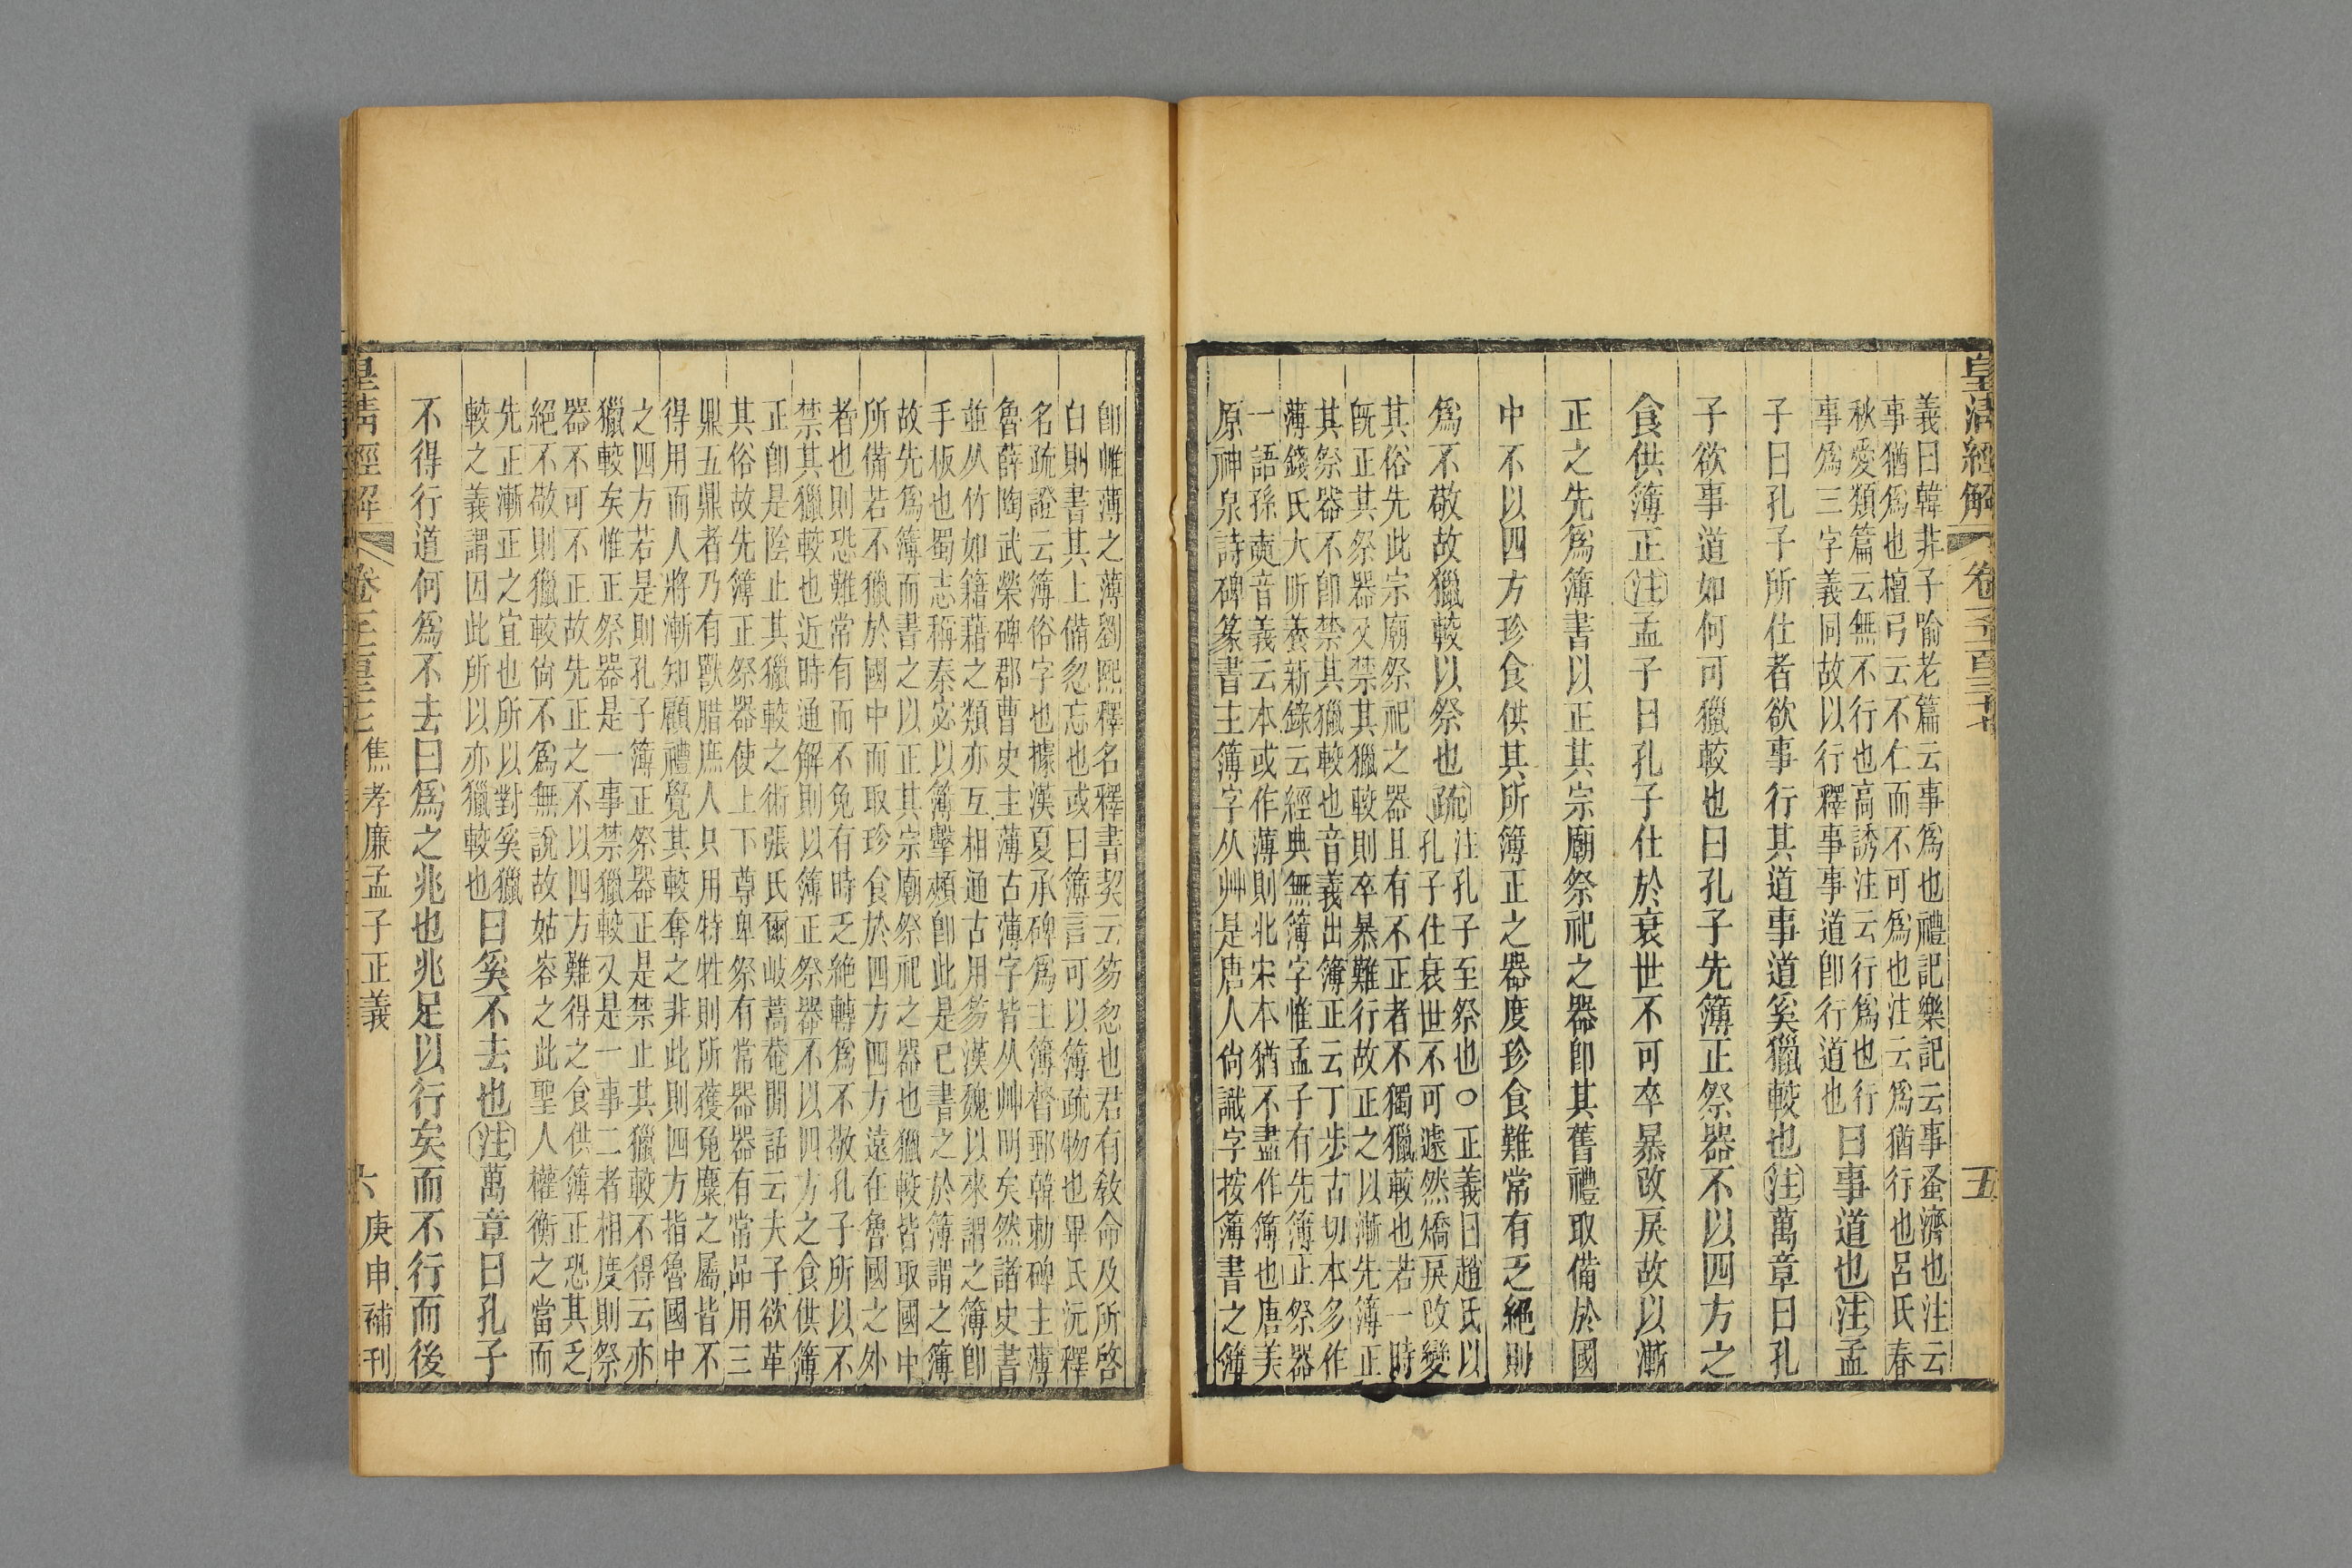 皇清經解 卷一千一百三十七 五
義曰韓非子喻老篇云事爲也禮記樂記云事蚤濟也注云
事猶爲也檀弓云不仁而不可爲也注云爲猶行也呂氏春
秋愛類篇云無不行也高誘注云行爲也行
事爲三字義同故以行釋事事道卽行道也
曰事道也注孟
子曰孔子所仕者欲事行其道事道奚獵較也注萬章曰孔
子欲事道如何可獵較也曰孔子先簿正祭器不以四方之
食供簿正注孟子曰孔子仕於衰世不可卒暴改戾故以漸
正之先爲簿書以正其宗廟祭祀之器卽其舊禮取備於國
中不以四方珍食供其所簿正之器度珍食難常有乏絕則
爲不敬故獵較以祭也疏
注孔子至祭也○正義曰趙氏以
孔子仕衰世不可遽然矯戾改變
其俗先此宗廟祭祀之器且有不正者不獨獵較也若一時
旣正其祭器又禁其獵較則卒暴難行故正之以漸先簿正
其祭器不卽禁其獵較也音義出簿正云丁步古切本多作
薄錢氏大昕養新錄云經典無簿字惟孟子有先簿正祭器
一語孫奭音義云本或作薄則北宋本猶不盡作簿也唐美
原神泉詩碑篆書主簿字从艸是唐人尙識字按簿書之簿
卽帷薄之薄劉熙釋名釋書契云笏忽也君有敎命及所啓
白則書其上備忽忘也或曰簿言可以簿疏物也畢氏沅釋
名疏證云簿俗字也據漢夏承碑爲主簿督郵韓勅碑主薄
魯薛陶武榮碑郡曹史主薄古薄字皆从艸明矣然諸史書
並从竹如籍藉之類亦互相通古用笏漢魏以來謂之簿卽
手板也蜀志稱秦宓以簿擊頰卽此是已書之於簿謂之簿
故先爲簿而書之以正其宗廟祭祀之器也獵較皆取國中
所備若不獵於國中而取珍食於四方四方遠在魯國之外
者也則恐難常有而不免有時乏絕轉爲不敬孔子所以不
禁其獵較也近時通解則以簿正祭器不以四方之食供簿
正卽是陰止其獵較之術張氏爾岐蒿菴閒話云夫子欲革
其俗故先簿正祭器使上下尊卑祭有常器器有常品用三
鼎五鼎者乃有獸腊庶人只用特牲則所獲兔麋之屬皆不
得用而人將漸知顧禮覺其較奪之非此則四方指魯國中
之四方若是則孔子簿正祭器正是禁止其獵較不得云亦
獵較矣惟正祭器是一事禁獵較又是一事二者相度則祭
器不可不正故先正之不以四方難得之食供簿正恐其乏
絕不敬則獵較尙不爲無說故姑容之此聖人權衡之當而
先正漸正之宜也所以對奚獵
較之義謂因此所以亦獵較也
曰奚不去也注萬章曰孔子
不得行道何爲不去曰爲之兆也兆足以行矣而不行而後
皇清經解 卷一千一百三十七 焦孝廉孟子正義 六 庚申補刊